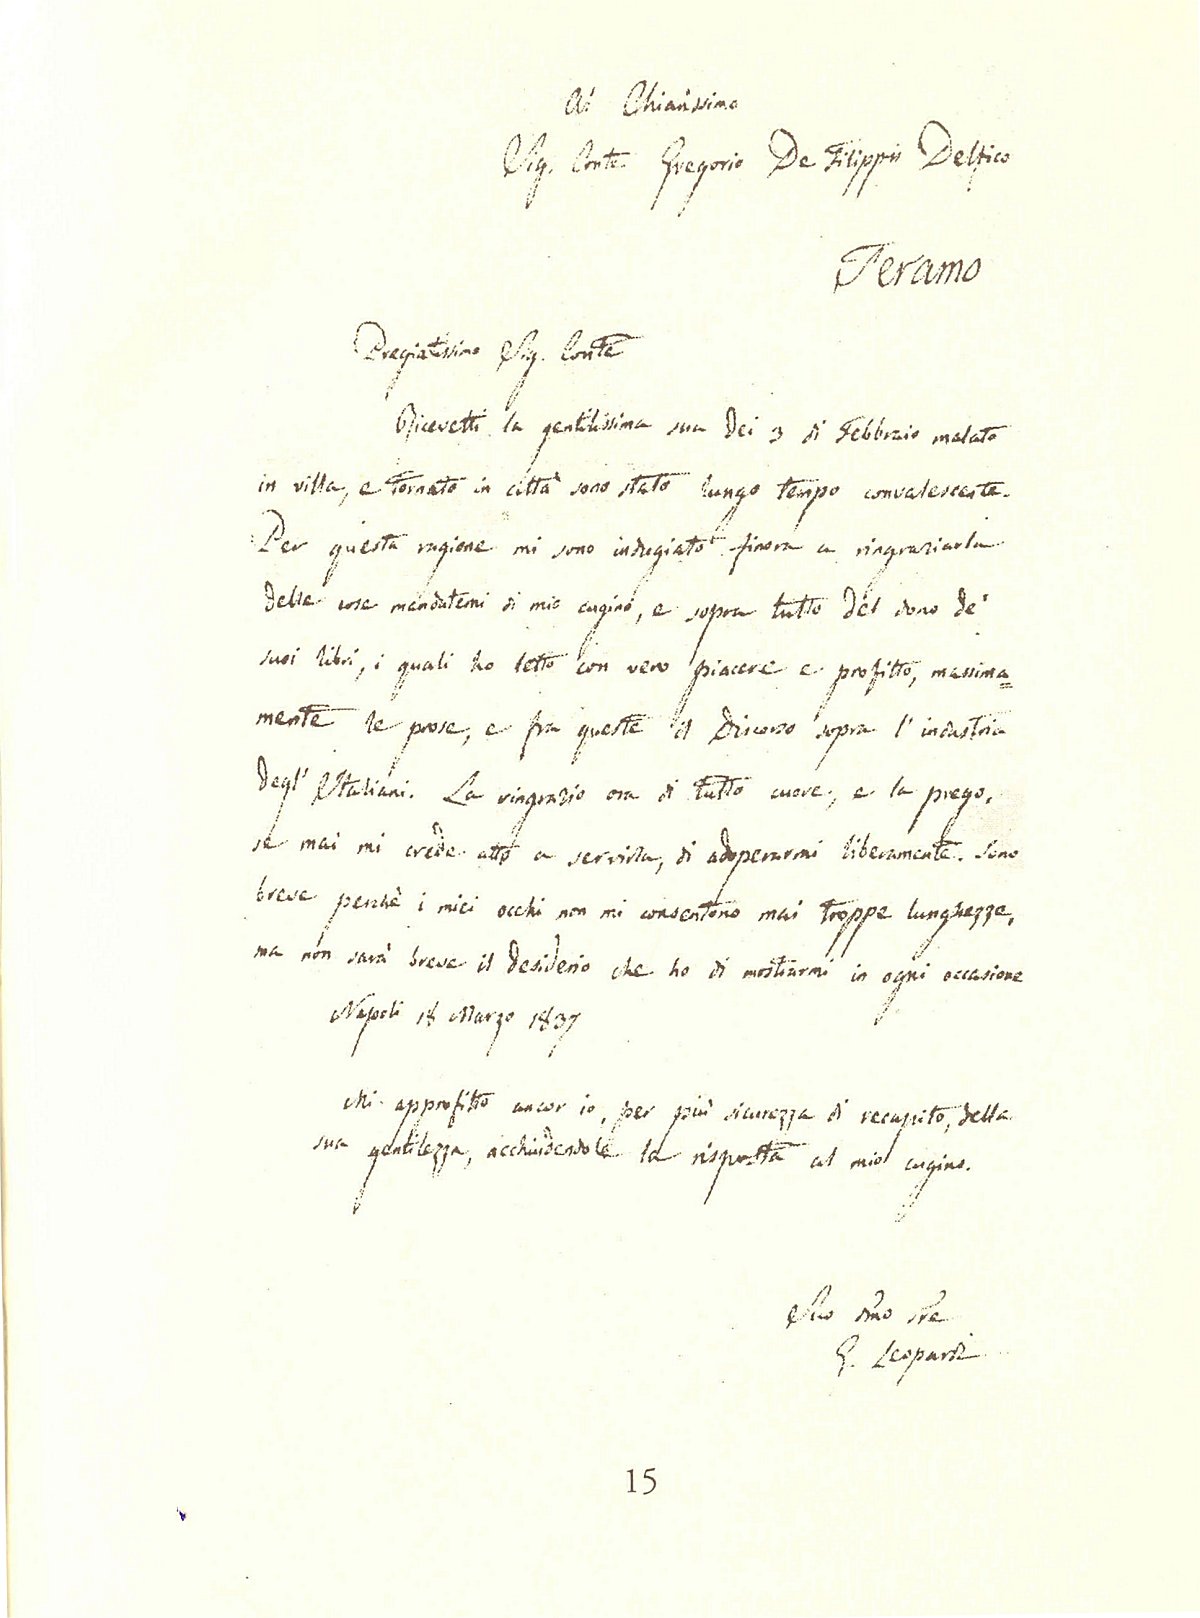 Al Chiarissimo
Sig. Conte Gregorio De Filippis Delfico
Teramo
Pregiatissimo Sig. Conte
Ricevetti la gentilissima sua dei 3 di Febbraio malato
in villa, e tornato in città sono stato lungo tempo convalescente.
Per questa ragione mi sono indugiato finora a ringraziarla
delle cose mandatemi di mio cugino, e sopra tutto del dono de'
suoi libri, i quali ho letto con vero piacere e profitto, massima=
mente le prose, e fra queste il Discorso sopra l'industria
degl'Italiani. La ringrazio ora di tutto cuore, e la prego,
se mai mi crede atto a servirla, di adoperarmi liberamente. Sono
breve perchè i miei occhi non mi consentono mai troppe lunghezze,
ma non sarà breve il desiderio che ho di mostrarmi in ogni occasione
Napoli 18 Marzo 1837
Mi approfitto ancor io, per più sicurezza di recapito, della
sua gentilezza, acchiudendole la risposta al mio cugino.
Suo dmo sre
G. Leopardi
15